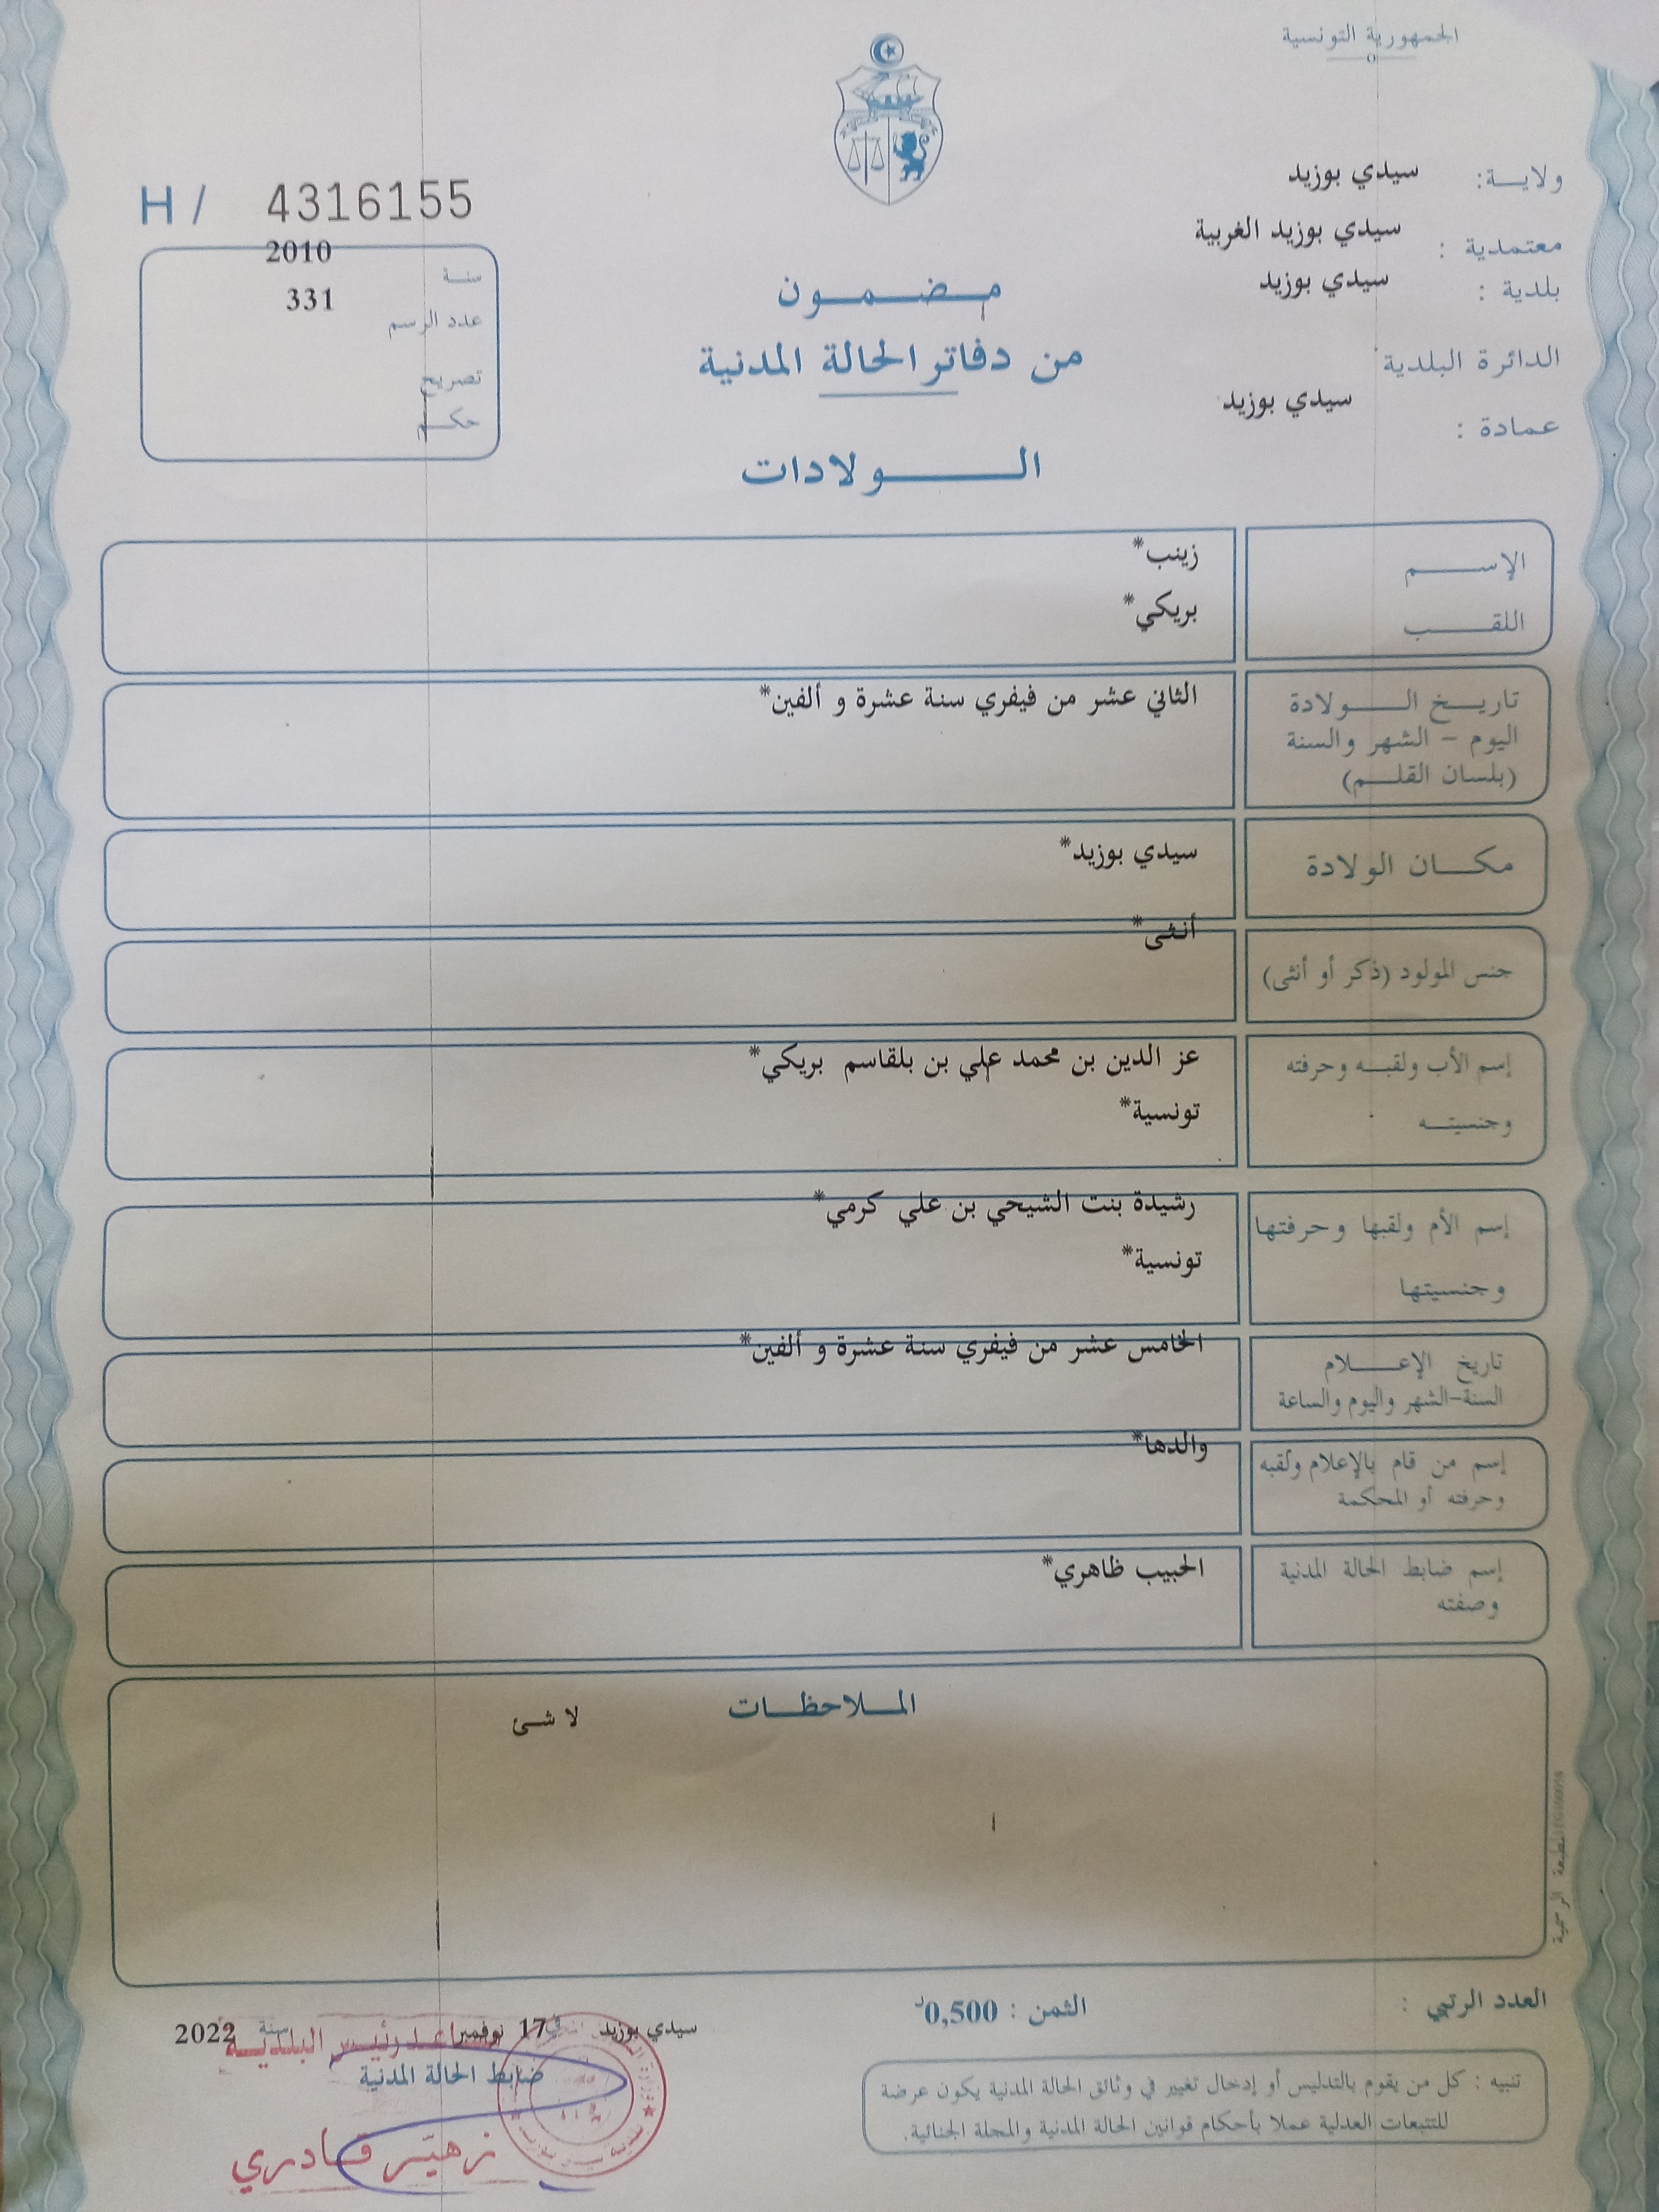 الجمهورية التونسية
ولايـة: سيدي بوزيد
معتمدية : سيدي بوزيد الغربية
بلدية : سيدي بوزيد
الدائرة البلدية
عمادة : سيدي بوزيد
H / 4316155
سنة 2010
عدد الرسم 331
تصريح
حكم
مضمون
من دفاتر الحالة المدنية
الولادات
الإسم زينب*
اللقب بريكي*
تاريخ الولادة الثاني عشر من فيفري سنة عشرة و ألفين*
اليوم - الشهر والسنة
(بلسان القلم)
مكان الولادة سيدي بوزيد*
جنس المولود (ذكر أو أنثى) أنثى*
إسم الأب ولقبه وحرفته عز الدين بن محمد علي بن بلقاسم بريكي*
وجنسيته تونسية*
إسم الأم ولقبها وحرفتها رشيدة بنت الشيحي بن علي كرمي*
وجنسيتها تونسية*
تاريخ الإعلام الخامس عشر من فيفري سنة عشرة و ألفين*
السنة-الشهر واليوم والساعة
إسم من قام بالإعلام ولقبه والدها*
وحرفته أو المحكمة
إسم ضابط الحالة المدنية الحبيب ظاهري*
وصفته
الملاحظات
لا شئ
المطبعة الرسمية
العدد الرتبي :
الثمن : 0,500د
سيدي بوزيد في 17 نوفمبر سنة 2022
مساعد رئيس البلدية
ضابط الحالة المدنية
زهير قادري
تنبيه : كل من يقوم بالتدليس أو إدخال تغيير في وثائق الحالة المدنية يكون عرضة
للتتبعات العدلية عملا بأحكام قوانين الحالة المدنية والمجلة الجنائية.